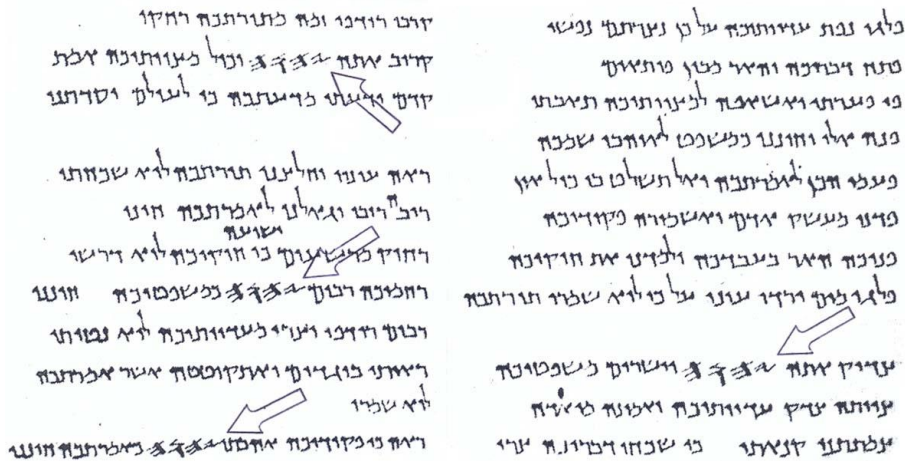 פלגי נפת עדוותיכה על כן נצרתם נפשי
פתח דבריכה והאר מבין פותאים
פי פערתי ואשאפה למצוותיכה תאבתי
פנה אלי וחונני כמשפט לאוהבי שמכה
פעמי הכן לאמרתכה ואל תשלט בי כול און
פדני מעשק אדם ואשמורה פקודיכה
פניכה האר בעבדכה ולמדני את חוקיכה
פלגי מים ירדו עיני על כי לוא שמרו תורתכה
צדיק אתה 𐤉𐤄𐤅𐤄 וישרים משפטיכה
צויתה צדק עדוותיכה ואמונה מואדה
צמתתני קנאתי כי שכחו דבריכה צרי
קרבו רודפי זמה מתורתכה רחקו
קרוב אתה 𐤉𐤄𐤅𐤄 וכול מצוותיכה אמת
קדם ידעתי מדעתכה כי לעולם יסדתני
ראה עוני וחלצני תורתכה לוא שכחתי
ריבה ריבי וגאלני לאמרתכה חיני
ישועה
רחוק מרשעים כי חוקיכה לוא דרשו
רחמיכה רבים 𐤉𐤄𐤅𐤄 כמשפטיכה חונני
רבים רודפי וצרי מעדוותיכה לוא נטיתי
ראיתי בוגדים ואתקוטטה אשר אמרתכה
לוא שמרו
ראה כי פקודיכה אהבתי 𐤉𐤄𐤅𐤄 כאמרתכה חונני